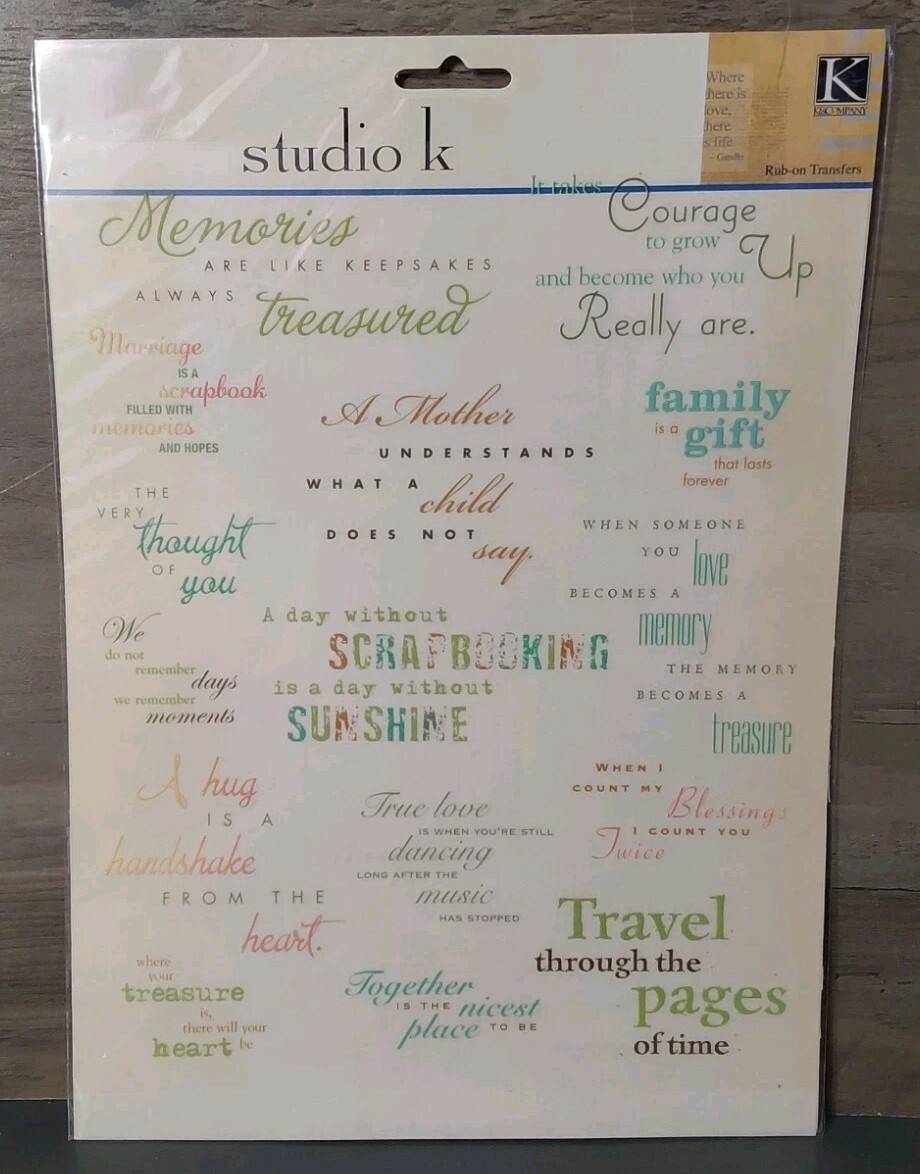 studio k
Where
here is
ove,
here
s life
- Gandhi
K
K&COMPANY
Rub-on Transfers
Memories
ARE LIKE KEEPSAKES
ALWAYS treasured
It takes Courage
to grow Up
and become who you
Really are.
Marriage
IS A
scrapbook
FILLED WITH
memories
AND HOPES
A Mother
UNDERSTANDS
WHAT A
child
DOES NOT
say.
family
is a gift
that lasts
forever
THE
VERY
thought
OF
you
WHEN SOMEONE
YOU love
BECOMES A
memory
THE MEMORY
BECOMES A
treasure
We
do not
remember
days
we remember
moments
A day without
SCRAPBOOKING
is a day without
SUNSHINE
A hug
IS A
handshake
FROM THE
heart.
True love
IS WHEN YOU'RE STILL
dancing
LONG AFTER THE
music
HAS STOPPED
WHEN I
COUNT MY
Blessings
I COUNT YOU
Twice
where
your
treasure
is,
there will your
heart be
Together
IS THE nicest
place TO BE
Travel
through the
pages
of time